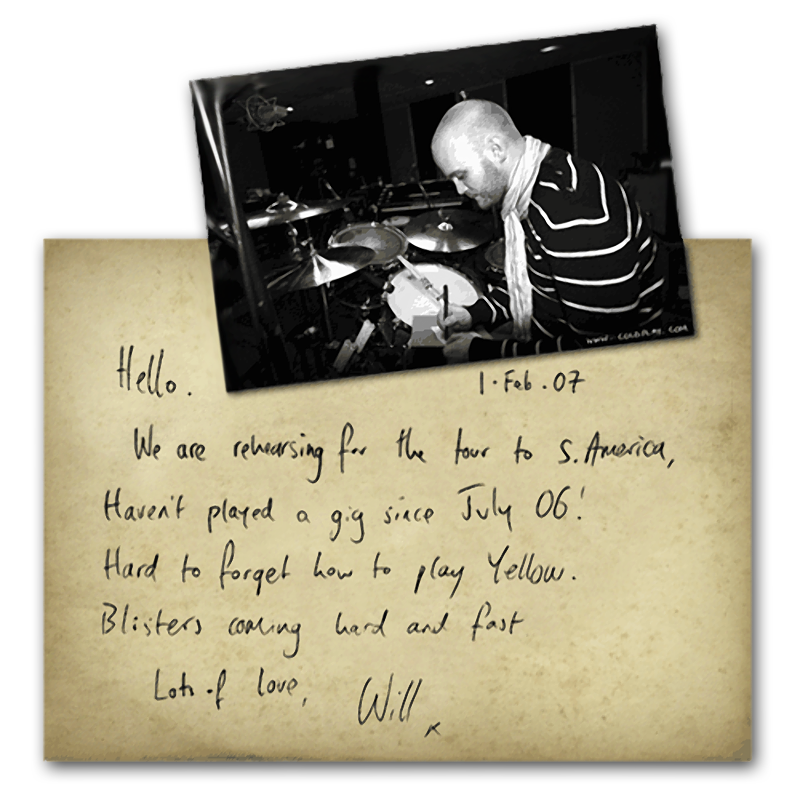 www.coldplay.com
Hello.
1. Feb. 07
We are rehearsing for the tour to S. America,
Haven't played a gig since July 06!
Hard to forget how to play Yellow.
Blisters coming hard and fast
Lots of love, Will x